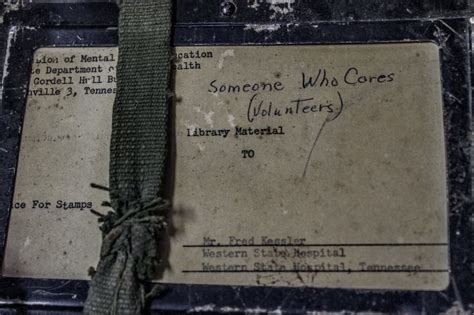 ion of Mental    cation
te Department o    ealth
Cordell Hall Bu
hville 3, Tennes
Someone Who Cares
(Volunteers)
Library Material
TO
ce For Stamps
Mr. Fred Kessler
Western State Hospital
Western State Hospital, Tennessee